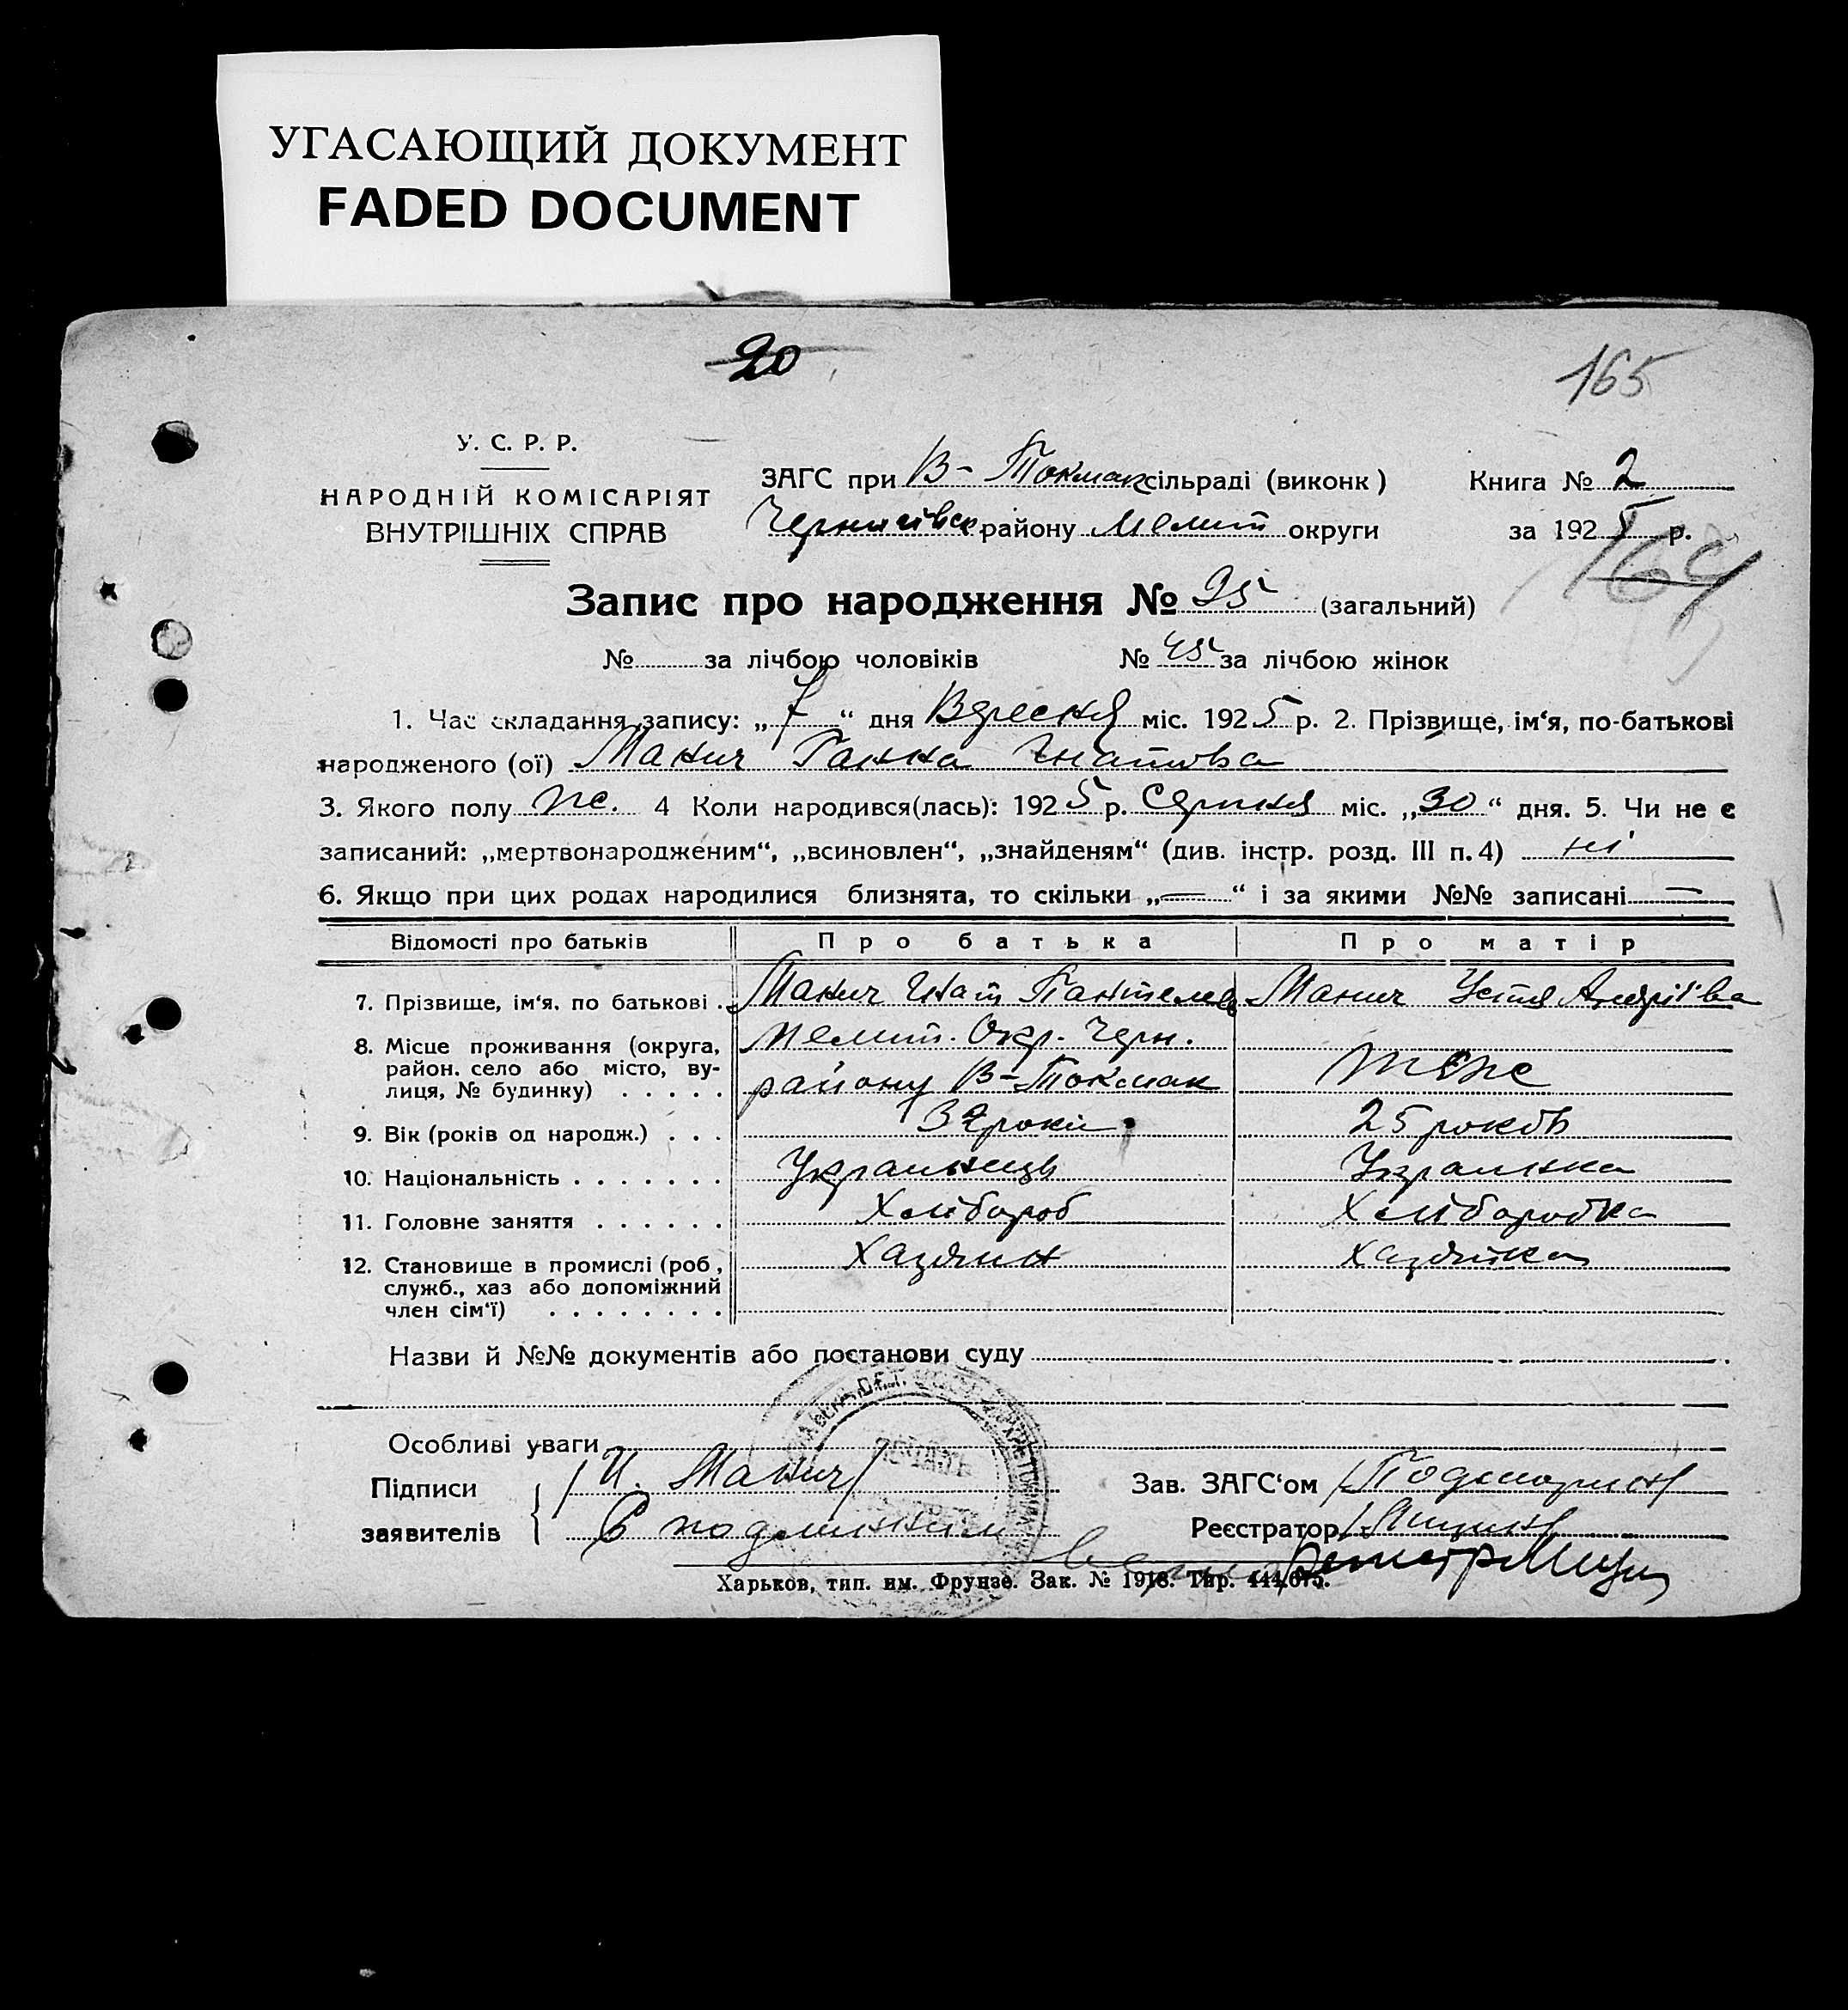 УГАСАЮЩИЙ ДОКУМЕНТ
FADED DOCUMENT
20
165
У. С. Р. Р.
НАРОДНІЙ КОМІСАРІЯТ
ВНУТРІШНІХ СПРАВ
ЗАГС при В-Токмак сільраді (виконк)
Чернигівск району Мелит округи
Книга № 2
за 1925 р.
164
Запис про народження № 95 (загальний)
№ за лічбою чоловіків № 45 за лічбою жінок
1. Час складання запису: „7“ дня Вересня міс. 1925 р. 2. Прізвище, ім‘я, по-батькові
народженого (ої) Манич Ганна Гнатовa
3. Якого полу же. 4 Коли народився(лась): 1925 р. Серпня міс. „30“ дня. 5. Чи не є
записаний: „мертвонародженим“, „всиновлен“, „знайденям“ (див. інстр. розд. III п. 4) ні
6. Якщо при цих родах народилися близнята, то скільки „—“ і за якими №№ записані —
Відомості про батьків Про батька Про матір
7. Прізвище, ім‘я, по батькові . Манич Гнат Пантелев Манич Устя Андріїва
8. Місце проживання (округа, Мелит. Окр. Черн.
район. село або місто, ву-
лиця, № будинку) . . . . . району В-Токмак теж
9. Вік (років од народж.) . . . 32 роки 25 роков
10. Національність . . . . . . . Українець Українка
11. Головне заняття . . . . . . Хлібороб Хліборобка
12. Становище в промислі (роб, Хазяин Хазяйка
служб., хаз або допоміжний
член сім‘ї) . . . . . . . .
Назви й №№ документів або постанови суду
Особливі уваги
Підписи И. Манич Зав. ЗАГС‘ом
заявителів С подлинным Реєстратор
верно
Харьков, тип. им. Фрунзе. Зак. № 1918. Тир. 444.675.